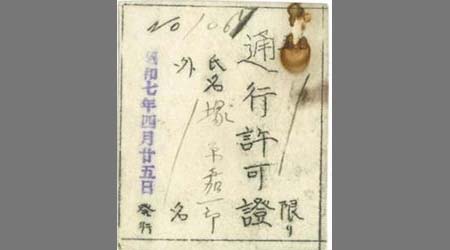 No 1064
限り
通行許可證
氏名 塚
外 名
昭和七年四月廿五日 発行